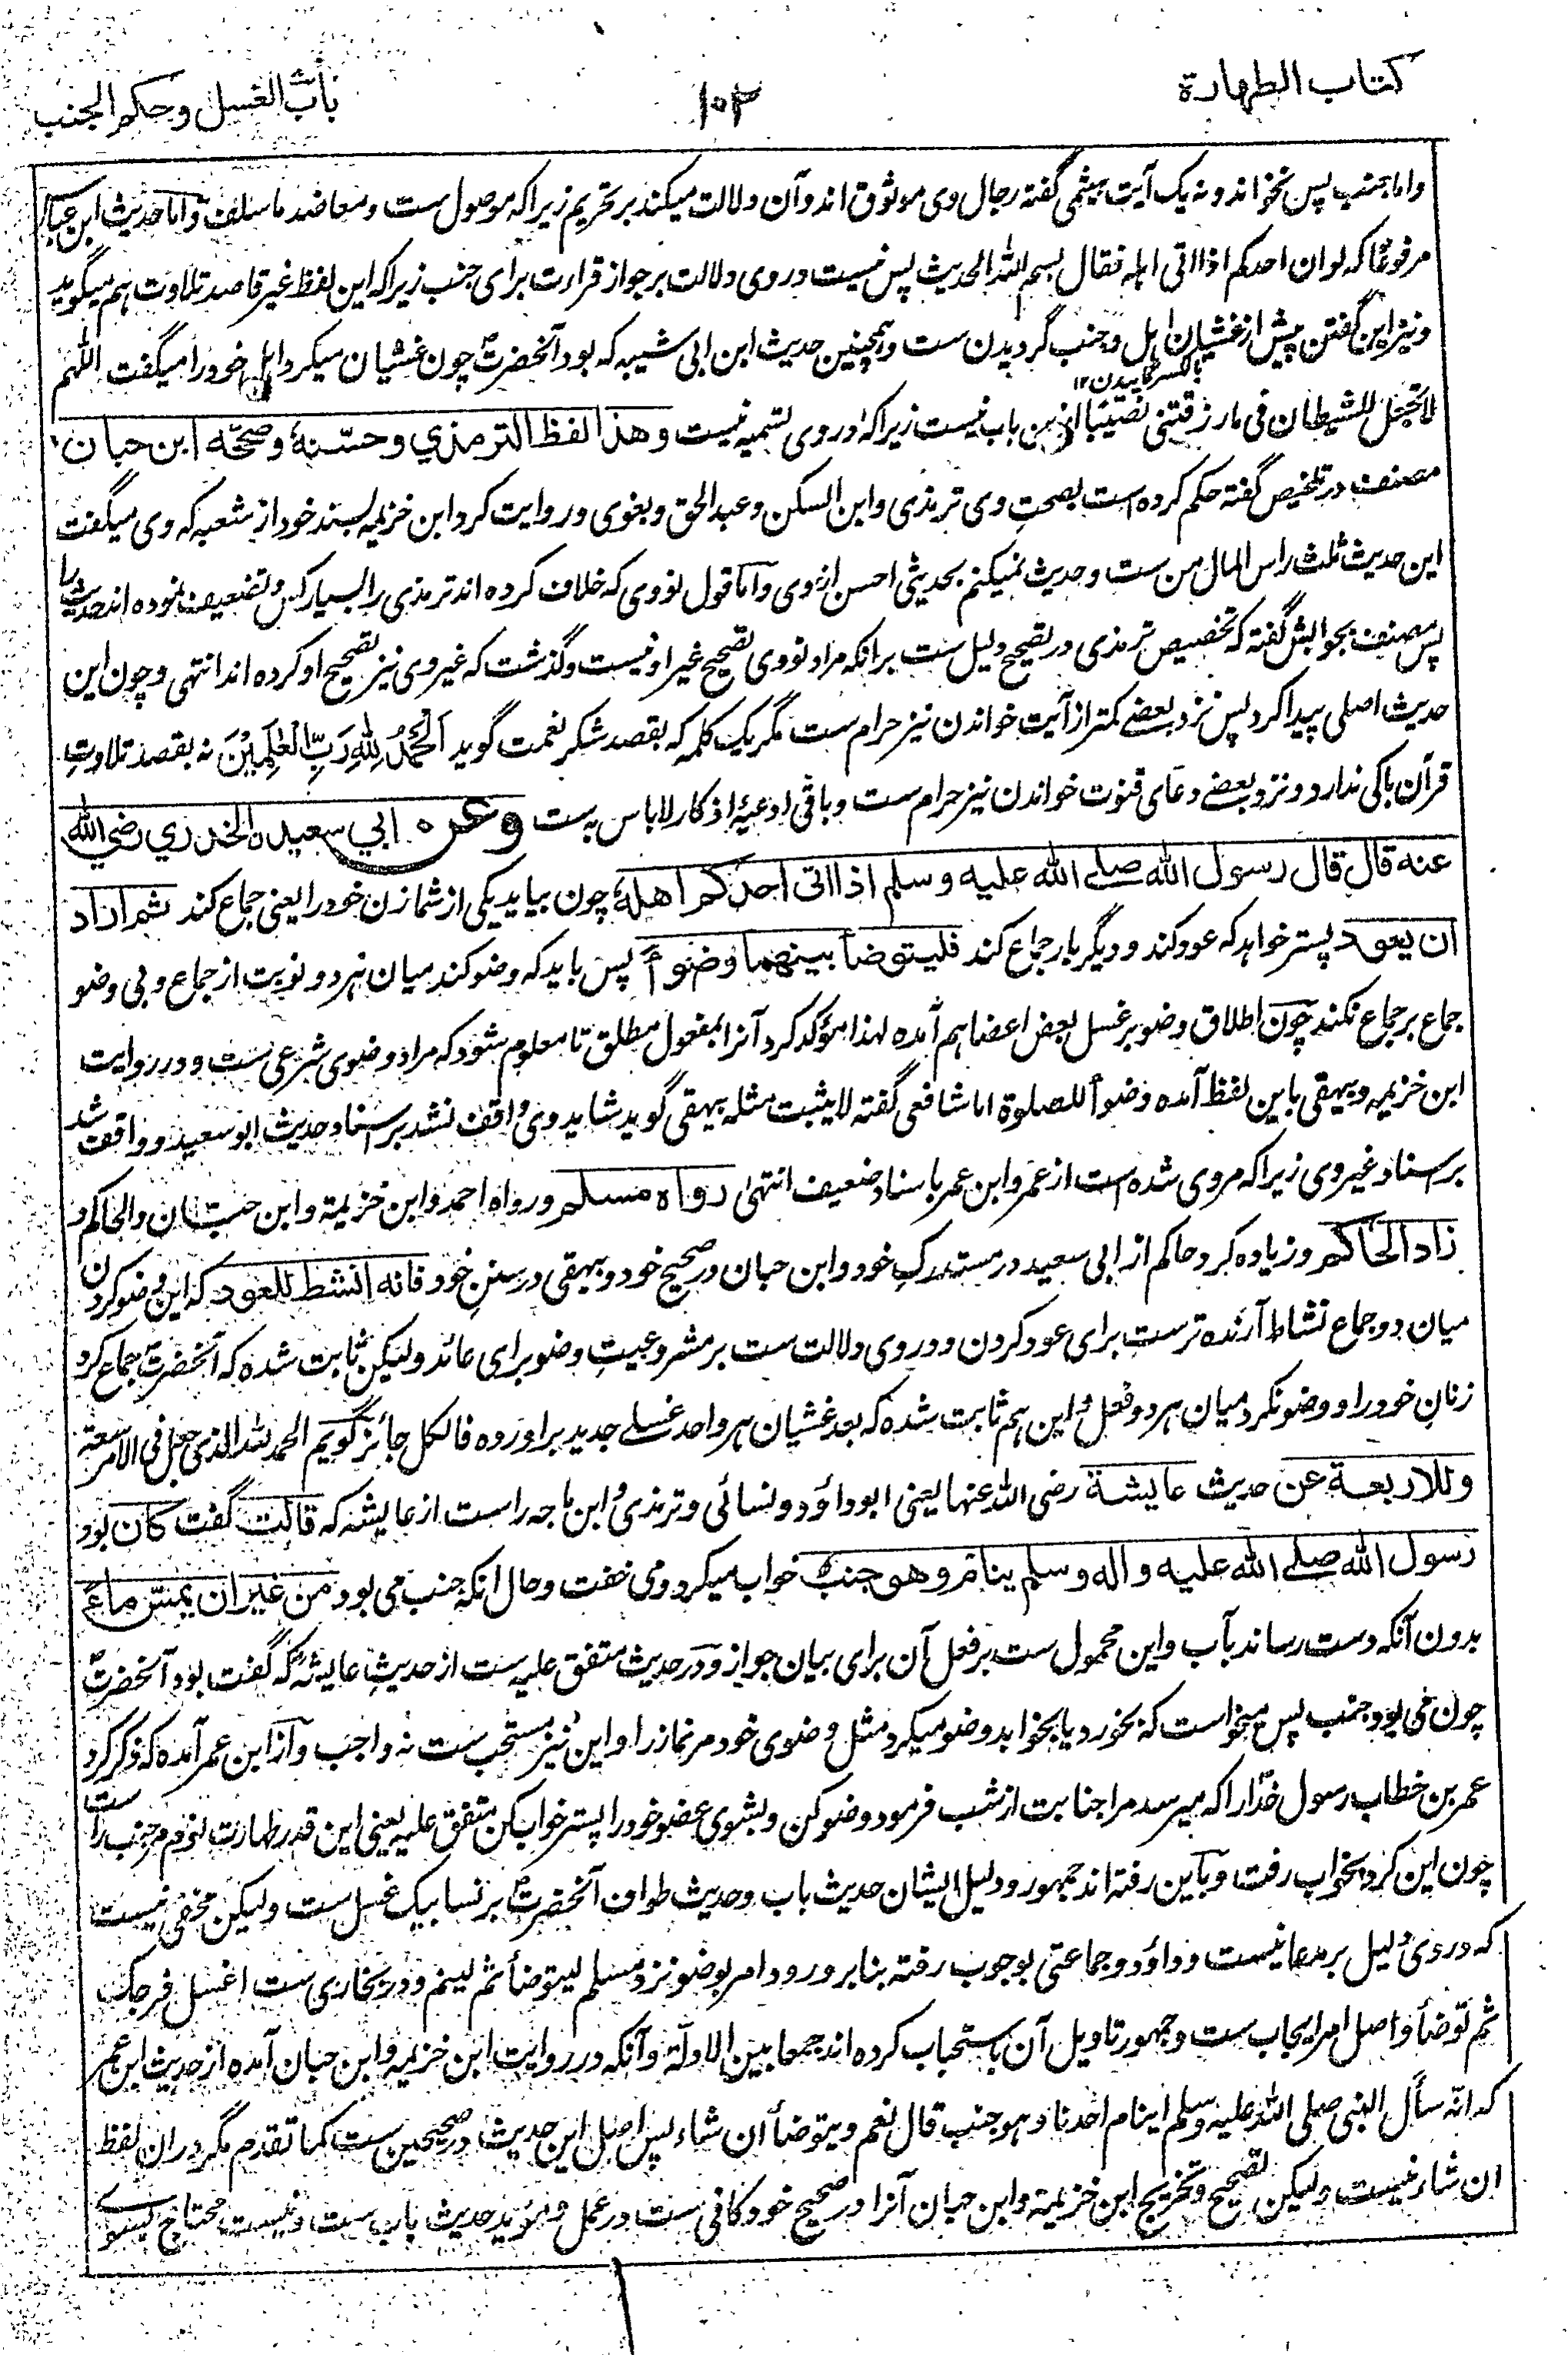 کتاب الطهارة
۱۰۲
باب الغسل وحکم الجنب
واما جنب پس نخواند و نه یک آیت هیثمی گفته رجال وی موثوق اند و آن دلالت میکند بر تحریم زیرا که موصول ست و معاضد ما سلف و اما حدیث ابن عباس
مرفوعًا که لو ان احدکم اذا اتی اهله فقال بسم الله الحدیث پس نیست در وی دلالت بر جواز قراءت برای جنب زیرا که این لفظ غیر قاصد تلاوت هم میگوید
و نیز این گفتن پیش از غشیان اهل و جنب گردیدن ست و همچنین حدیث ابن ابی شیبه که بود آنحضرت چون غشیان میکرد اهل خود را میگفت اللهم
لا تجعل للشیطان فی ما رزقتنی نصیبًا ازین باب نیست زیرا که در وی تسمیه نیست وهذا لفظ الترمذي وحسّنه وصححّه ابن حبان
مصنف در تلخیص گفته حکم کرده است بصحت وی ترمذی و ابن السکن و عبد الحق و بغوی و روایت کرد ابن خزیمه بسند خود از شعبه که وی میگفت
این حدیث ثلث راس المال من ست و حدیث نمیکنم بحدیثی احسن از وی و اما قول نووی که خلاف کرده اند ترمذی را بسیار کس و تضعیف نموده اند حدیث را
پس مصنف بجوابش گفته که تخصیص ترمذی در تصحیح دلیل ست بر آنکه مراد نووی تصحیح غیر او نیست و گذشت که غیر وی نیز تصحیح او کرده اند انتهی و چون این
حدیث اصلی پیدا کرد پس نزد بعضے کمتر از آیت خواندن نیز حرام ست مگر یک کلمه که بقصد شکر نعمت گوید اَلْحَمْدُ لِلّٰهِ رَبِّ الْعٰلَمِیْنَ نه بقصد تلاوتِ
قرآن باکی ندارد و نزد بعضے دعای قنوت خواندن نیز حرام ست و باقی ادعیۀ اذکار لا باس به ست وعن ابي سعید الخدري رضي الله
عنه قال قال رسول الله صلے الله علیه وسلم اذا اتی احدکم اهله چون بیاید یکی از شما زن خود را یعنی جماع کند ثم اراد
ان یعود پستر خواهد که عود کند و دیگر بار جماع کند فلیتوضأ بینهما وضوءًا پس باید که وضو کند میان هر دو نوبت از جماع و بی وضو
جماع بر جماع نکند چون اطلاق وضو بر غسل بعض اعضا هم آمده لهذا مؤکد کرد آنرا بمفعول مطلق تا معلوم شود که مراد وضوی شرعی ست و در روایت
ابن خزیمه و بیهقی باین لفظ آمده وضوأ للصلوة اما شافعی گفته لا یثبت مثله بیهقی گوید شاید وی واقف نشد بر اسناد حدیث ابو سعید و واقف شد
بر اسناد غیر وی زیرا که مروی شده است از عمر و ابن عمر باسناد ضعیف انتهیٰ رواه مسلم ورواه احمد وابن خزیمة وابن حبان والحاکم و
زاد الحاکم و زیاده کرد حاکم از ابی سعید در مستدرک خود و ابن حبان در صحیح خود و بیهقی در سنن خود فانه انشط للعود که این وضو کردن
میان دو جماع نشاط آرنده ترست برای عود کردن و در وی دلالت ست بر مشروعیتِ وضو برای عائد و لیکن ثابت شده که آنحضرت جماع کرد
زنان خود را و وضو نکرد میان هر دو فعل و این هم ثابت شده که بعد غشیان هر واحد غسلے جدید برآورده فالکل جائز گویم الحمد لله الذی جعل فی الامر سعة
وللاربعة عن حدیث عایشة رضی الله عنها یعنی ابوداؤد و نسائی و ترمذی و ابن ماجه راست از عایشه که قالت گفت کان بود
رسول الله صلے الله علیه واله وسلم ینام وهو جنب خواب میکرد و می خفت و حال آنکه جنب می بود من غیر ان یمسّ ماءً
بدون آنکه دست رساند بآب و این محمول ست بر فعل آن برای بیان جواز و در حدیث متفق علیه ست از حدیث عایشه که گفت بود آنحضرت
چون می بود جنب پس میخواست که بخورد یا بخوابد وضو میکرد مثل وضوی خود مر نماز را و این نیز مستحب ست نه واجب و از ابن عمر آمده که ذکر کرد
عمر بن خطاب رسول خدا را که میرسد مرا جنابت از شب فرمود وضو کن و بشوی عضو خود را پستر خواب کن متفق علیه یعنی این قدر طهارت لازم مر جنب راست
چون این کرد بخواب رفت و باین رفته اند جمهور و دلیل ایشان حدیث باب و حدیث طواف آنحضرت بر نسا بیک غسل ست و لیکن مخفی نیست
که در وی دلیل بر مدعا نیست و داؤد و جماعتی بوجوب رفته بنا بر ورود امر بوضو نزد مسلم لیتوضأ ثم لینم و در بخاری ست اغسل فرجک
ثم توضأ و اصل امر ایجاب ست و جمهور تاویل آن باستحباب کرده اند جمعا بین الادلّة و آنکه در روایت ابن خزیمه و ابن حبان آمده از حدیث ابن عمر
که انّه سأل النبی صلی الله علیه وسلم اینام احدنا وهو جنب قال نعم ویتوضأ ان شاء پس اصل این حدیث در صحیحین ست کما تقدم مگر در ان لفظ
ان شاء نیست و لیکن تصحیح و تخریج ابن خزیمة و ابن حبان آنرا در صحیح خود کافی ست در عمل و مؤید حدیث باب ست و نیست محتاج بسوے